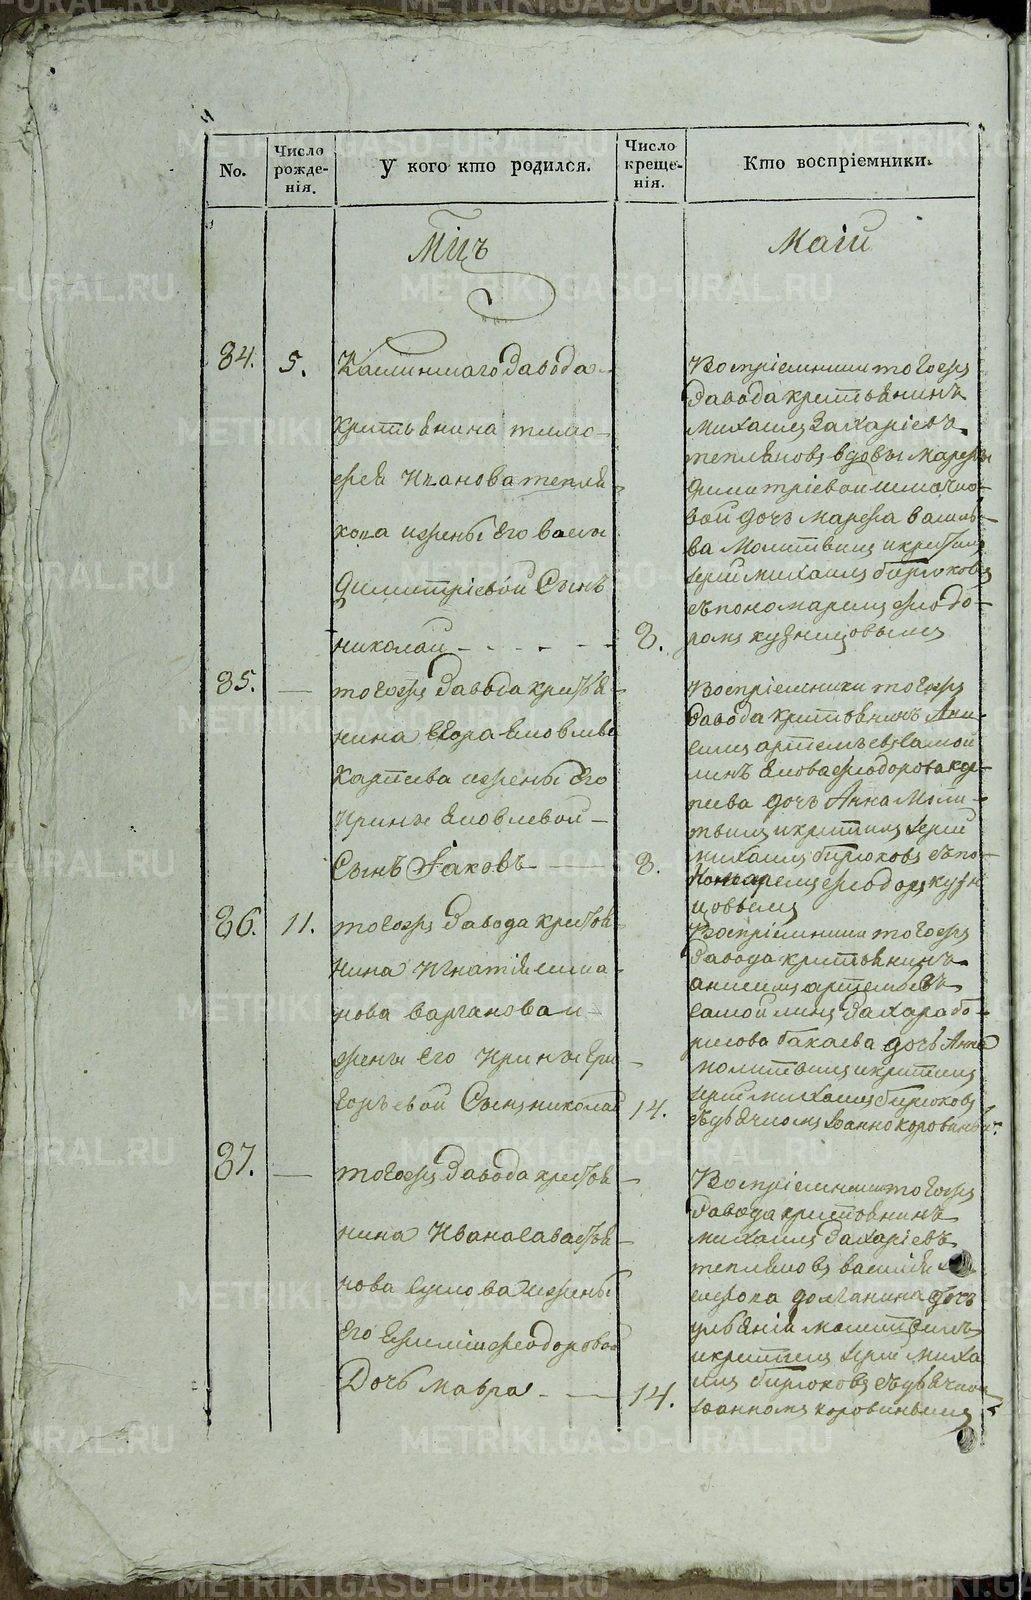 No.
Число рожде- нія.
У кого кто родился.
Число креще- нія.
Кто воспріемники.
Мцъ
Маій
84.
5.
Каслинскаго завода
крестьянина тимо-
фея Иванова тепля
кова и жены Его васы
Димитріевой Сынъ
николай
8.
Воспріемники тогожъ
завода крестьянинъ
михаилъ Захаріевъ
тепляковъ вдовы марѳы
димитріевой
вой дочь марѳа василь-
ва Молитвилъ и крестилъ
Іерей михаилъ бирюковъ
съ пономаремъ ѳеодо-
ромъ кузнецовымъ
85.
тогожъ завода кресть
нина Егора Яковлева
Карпева и жены Его
Ирины Яковлевой
Сынъ Іаковъ
8.
Воспріемники тогожъ
завода крестьянинъ Ани-
симъ артемьевъ самой
линъ Якова ѳеодорова кар-
пева дочь Анна Моли-
твилъ и крестилъ Іерей
михаилъ бирюковъ съ по-
номаремъ ѳеодоромъ кузне
цовымъ
86.
11.
тогожъ завода крестья
нина Игнатія сима-
нова варганова и
жены Его Ирины Гри
горьевой Сынъ николай
14.
Воспріемники тогожъ
завода крестьянинъ
анисимъ артемьевъ
самойлинъ Захара бо-
рисова бакаева дочь Анна
молитвилъ и крестилъ
Іерей михаилъ бирюковъ
съ дьячкомъ Іоанно коровинымъ
87.
тогожъ завода крестья
нина Ивана савастья
нова суслова и жены
Его Евфиміи ѳеодоровой
Дочь мавра
14.
Воспріемники тогожъ
завода крестьянинъ
михаилъ Захаріевъ
тепляковъ василія
долганина дочь
ульянія молитвилъ
и крестилъ Іерей миха
илъ бирюковъ съ дьячкомъ
Іоанномъ коровинымъ